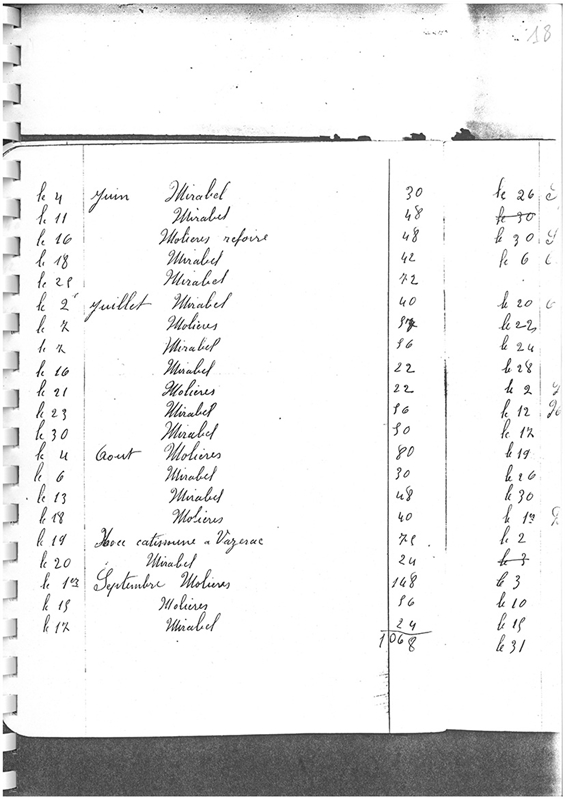 18
le 4 Juin Mirabel 30 le 26
le 11 Mirabel 48 le 30
le 16 Molieres refoire 48 le 30
le 18 Mirabel 42 le 6
le 25 Mirabel 72
le 2 Juillet Mirabel 40 le 20
le 7 Molieres le 22
le 7 Mirabel 96 le 24
le 16 Mirabel 22 le 28
le 21 Molieres 22 le 2
le 23 Mirabel 96 le 12
le 30 Mirabel 90 le 17
le 4 Aout Molieres 80 le 19
le 6 Mirabel 30 le 26
le 13 Mirabel 48 le 30
le 18 Molieres 40 le 1er
le 19 a Vazerac 75 le 2
le 20 Mirabel 24 le 3
le 1er Septembre Molieres 148 le 3
le 15 Molieres 96 le 10
le 17 Mirabel 24 le 15
1068 le 31